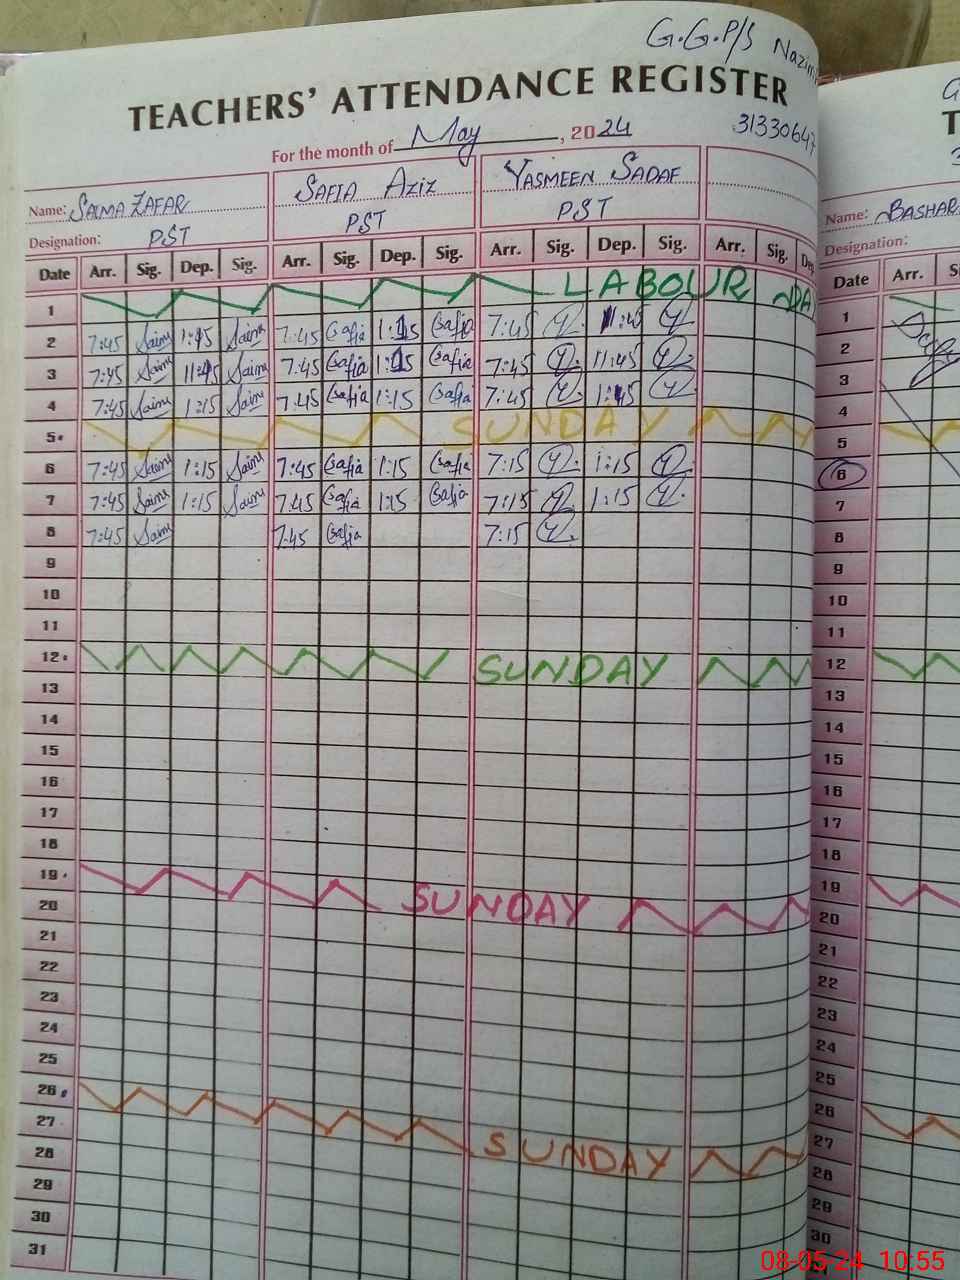 G.G.P/S
TEACHERS' ATTENDANCE REGISTER
For the month of May, 2024
31330647
Name: SALMA ZAFAR SAFIA AZIZ YASMEEN SADAF
Designation: PST PST PST
Date Arr. Sig. Dep. Sig. Arr. Sig. Dep. Sig. Arr. Sig. Dep. Sig. Arr. Sig.
1 LABOUR DA
2 7:45 7:45 Safia Safia 7:45
3 7:45 7:45 Safia Safia 7:45 11:45
4 7:45 1:15 7:45 Safia 1:15 Safia 7:45
5 SUNDAY
6 7:45 1:15 7:45 Safia 1:15 Safia 7:15 1:15
7 7:45 1:15 7:45 Safia 1:15 Safia 7:15 1:15
8 7:45 7:45 Safia 7:15
9
10
11
12 SUNDAY
13
14
15
16
17
18
19 SUNDAY
20
21
22
23
24
25
26 SUNDAY
27
28
29
30
31
Name: BASHAR
Designation:
Date Arr.
1
2
3
4
5
6
7
8
9
10
11
12
13
14
15
16
17
18
19
20
21
22
23
24
25
26
27
28
29
30
08-05-24 10:55